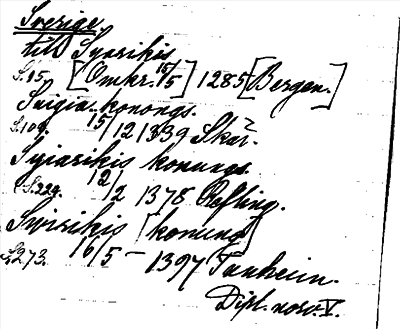 Sverige
till Syiarikis
S. 15. [Omkr. 15/5] 1285 [Bergen.]
Suigia konongs.
S. 109. 15/12 1339 Skar.
Syiarikis konungs.
S. 324. 12/2 1378
Swirikis [konung]
S. 273. 16/5 – 1397 Tunheim.
Dipl. norv. V.